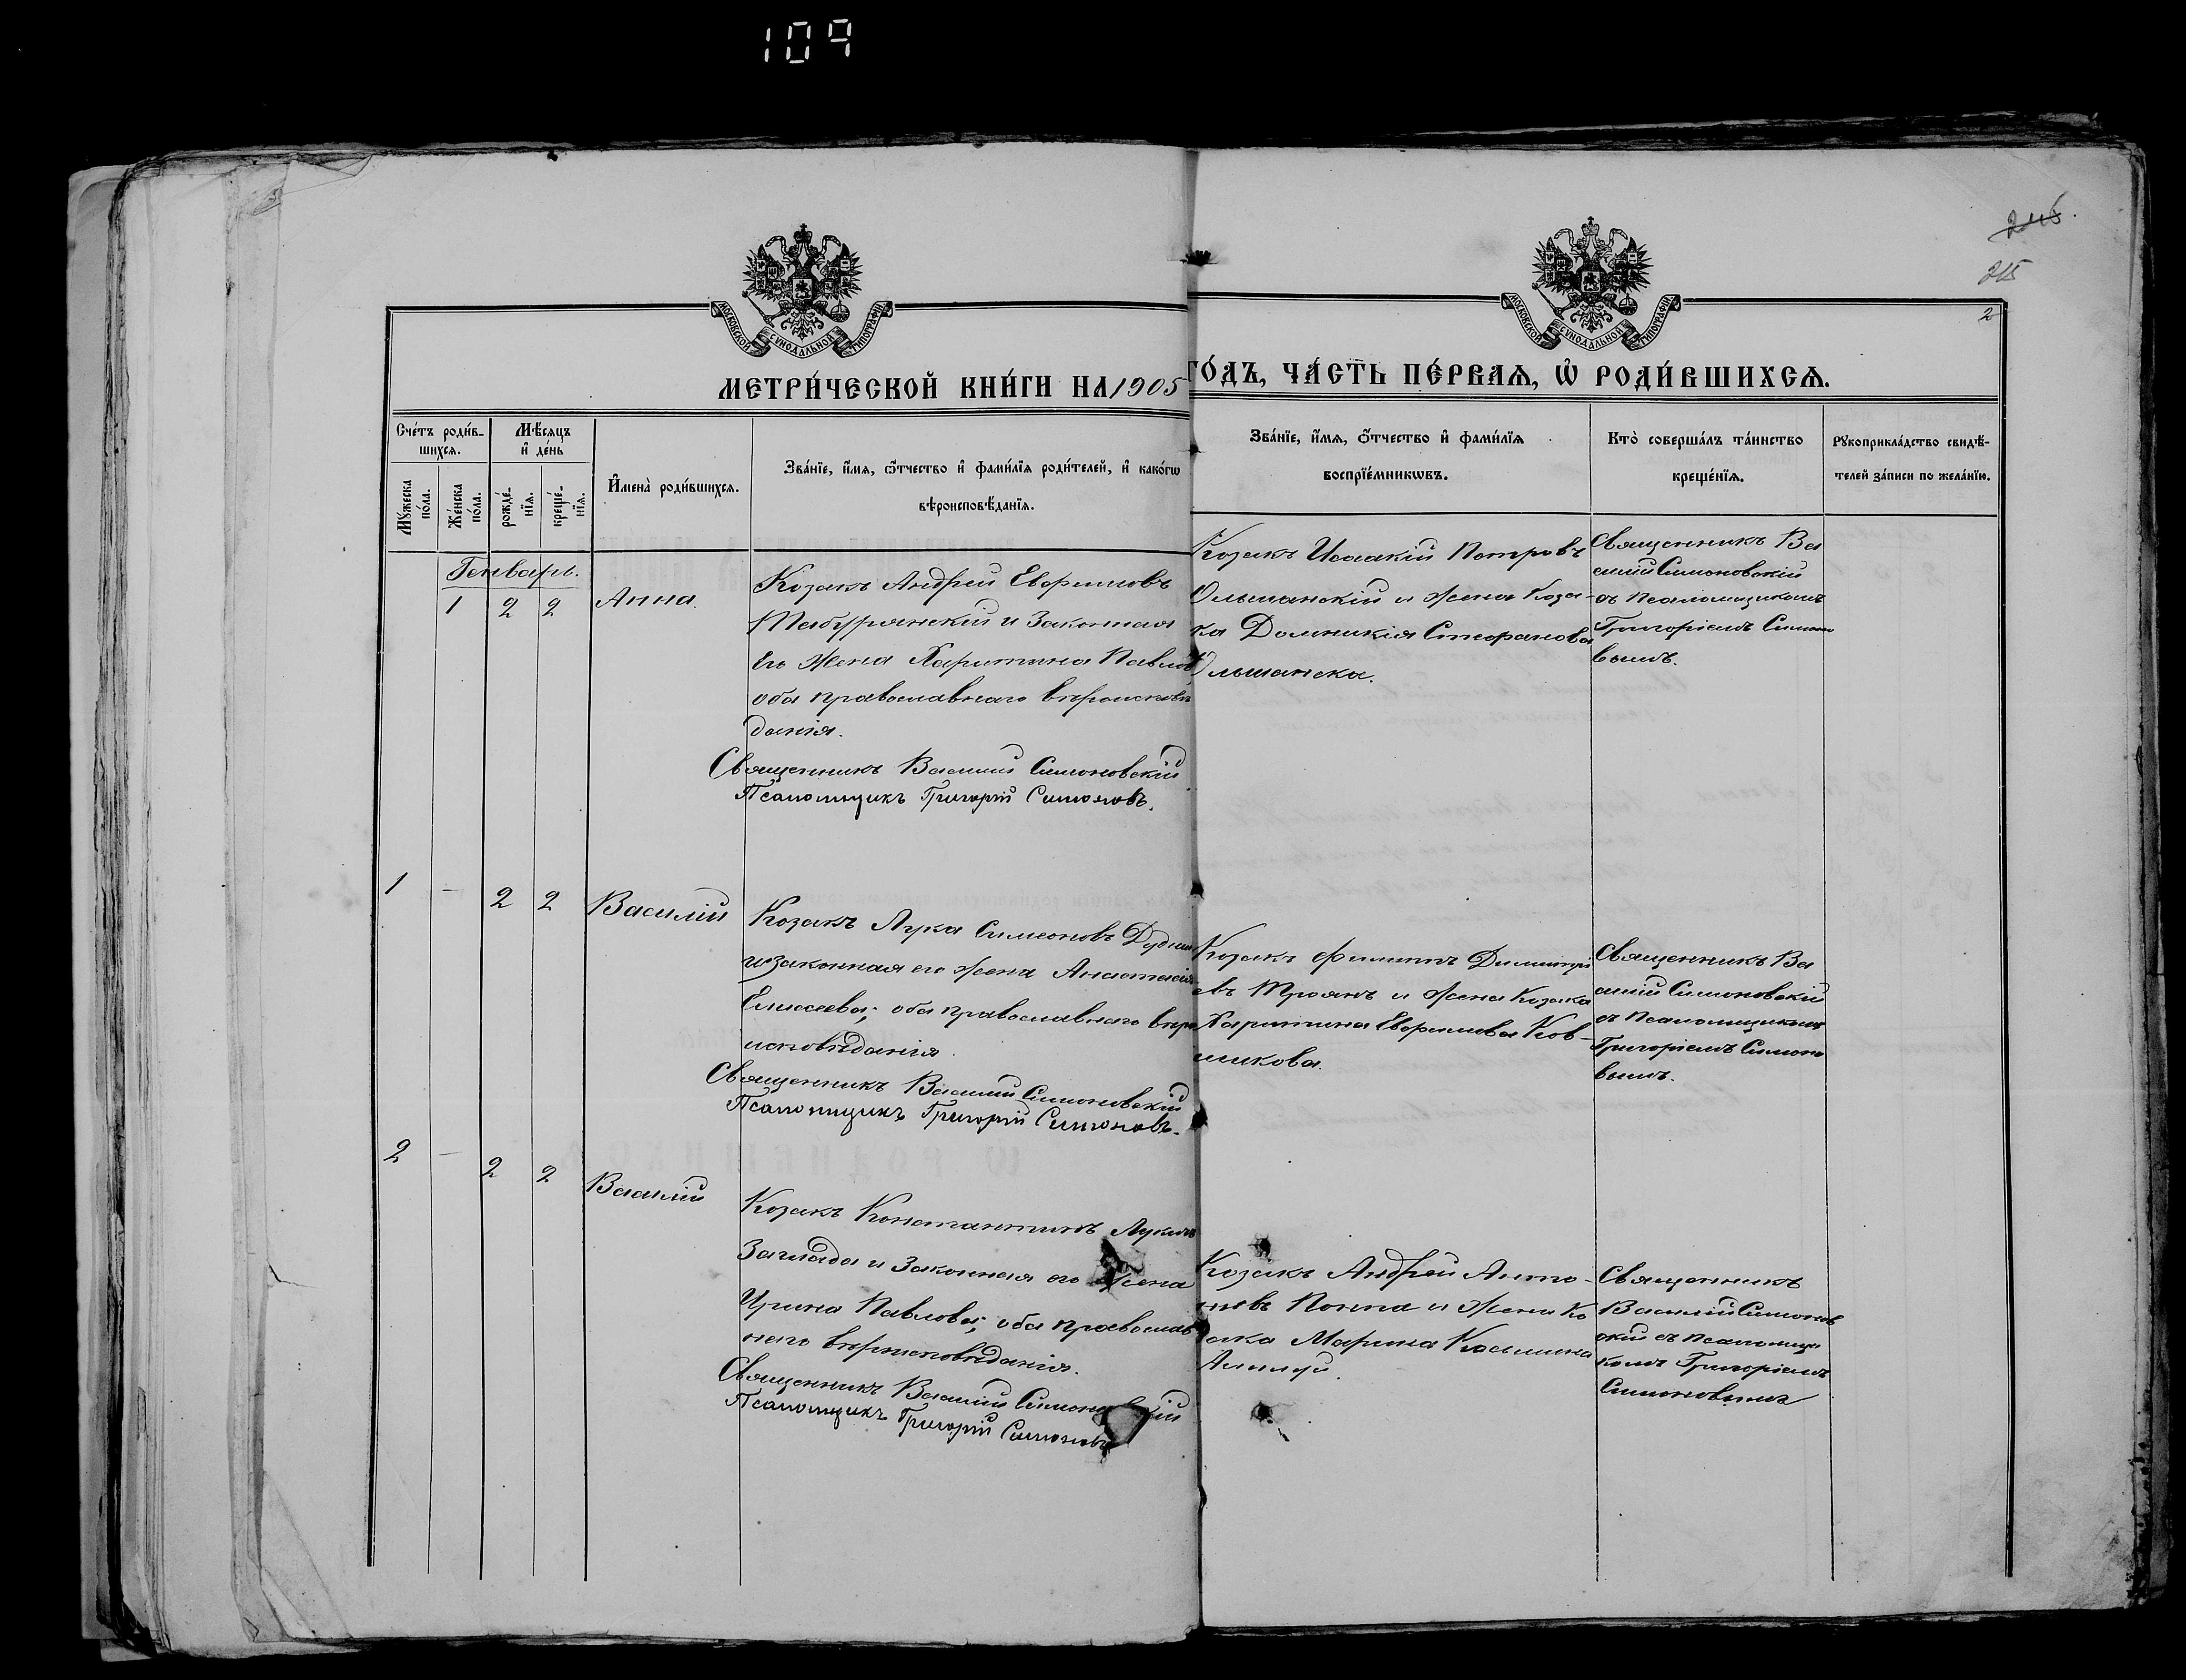 109
246.
215
2
МОСКОВСКОЙ СѴНОДАЛЬНОЙ ТИПОГРАФІИ
МОСКОВСКОЙ СѴНОДАЛЬНОЙ ТИПОГРАФІИ
МЕТРИ́ЧЕСКОЙ КНИ́ГИ НА 1905 ГО́ДЪ, ЧА́СТЬ ПЕ́РВАѦ, Ѡ҆ РОДИ́ВШИХСѦ.
Сче́тъ роди́в-
шихсѧ.
Мѣ́сѧцъ
и҆ де́нь
Мꙋ́жеска
по́ла.
Же́нска
по́ла.
рожде́-
нїѧ.
креще́-
нїѧ.
И҆мена̀ роди́вшихсѧ.
Зва́нїе, и҆́мѧ, ѻ҆́тчество и҆ фами́лїѧ роди́телей, и҆ како́гѡ
вѣроисповѣ́данїѧ.
Зва́нїе, и҆́мѧ, ѻ҆́тчество и҆ фами́лїѧ
воспрїе́мникѡвъ.
Кто̀ соверша́лъ та́инство
креще́нїѧ.
Рꙋкоприкла́дство свидѣ́-
телей за́писи по жела́нїю.
Генварь.
1 2 2 Анна.
Козакъ Андрей Евфимовъ
Табурянскій и Законная
Его Жена Харитина Павлов
оба православнаго вѣроисповѣ
данія.
Священникъ Василій Симоновскій
Псаломщикъ Григорій Симоновъ.
Козакъ Исаакій Петровъ
Ольшанскій и Жена Коза-
ка Домникія Стефанова
Ольшанска.
Священникъ Ва
силій Симоновскій
съ Псаломщикомъ
Григоріемъ Симоно
вымъ.
1 - 2 2 Василій
Козакъ Лука Симеоновъ
и законная его Жена Анастасія
Елисеева; оба православнаго вѣро
исповѣданія.
Священникъ Василій Симоновскій
Псаломщикъ Григорій Симоновъ.
Козакъ Филиппъ Димитрі
евъ Троянъ и Жена Козака
Харитина Евфимова Ков-
шикова.
Священникъ Ва
силій Симоновскій
съ Псаломщикомъ
Григоріемъ Симоно
вымъ.
2 - 2 2 Василій
Козакъ Константинъ Лукинъ
Заглада и Законная его Жена
Ирина Павлова; оба православ
наго вѣроисповѣданія.
Священникъ Василій Симоновскій
Псаломщикъ Григорій Симоновъ
Козакъ Андрей Анто-
новъ Поппа и Жена Ко
зака Марина Косьмина
Священникъ
Василій Симонов
скій съ Псаломщи
комъ Григоріемъ
Симоновымъ